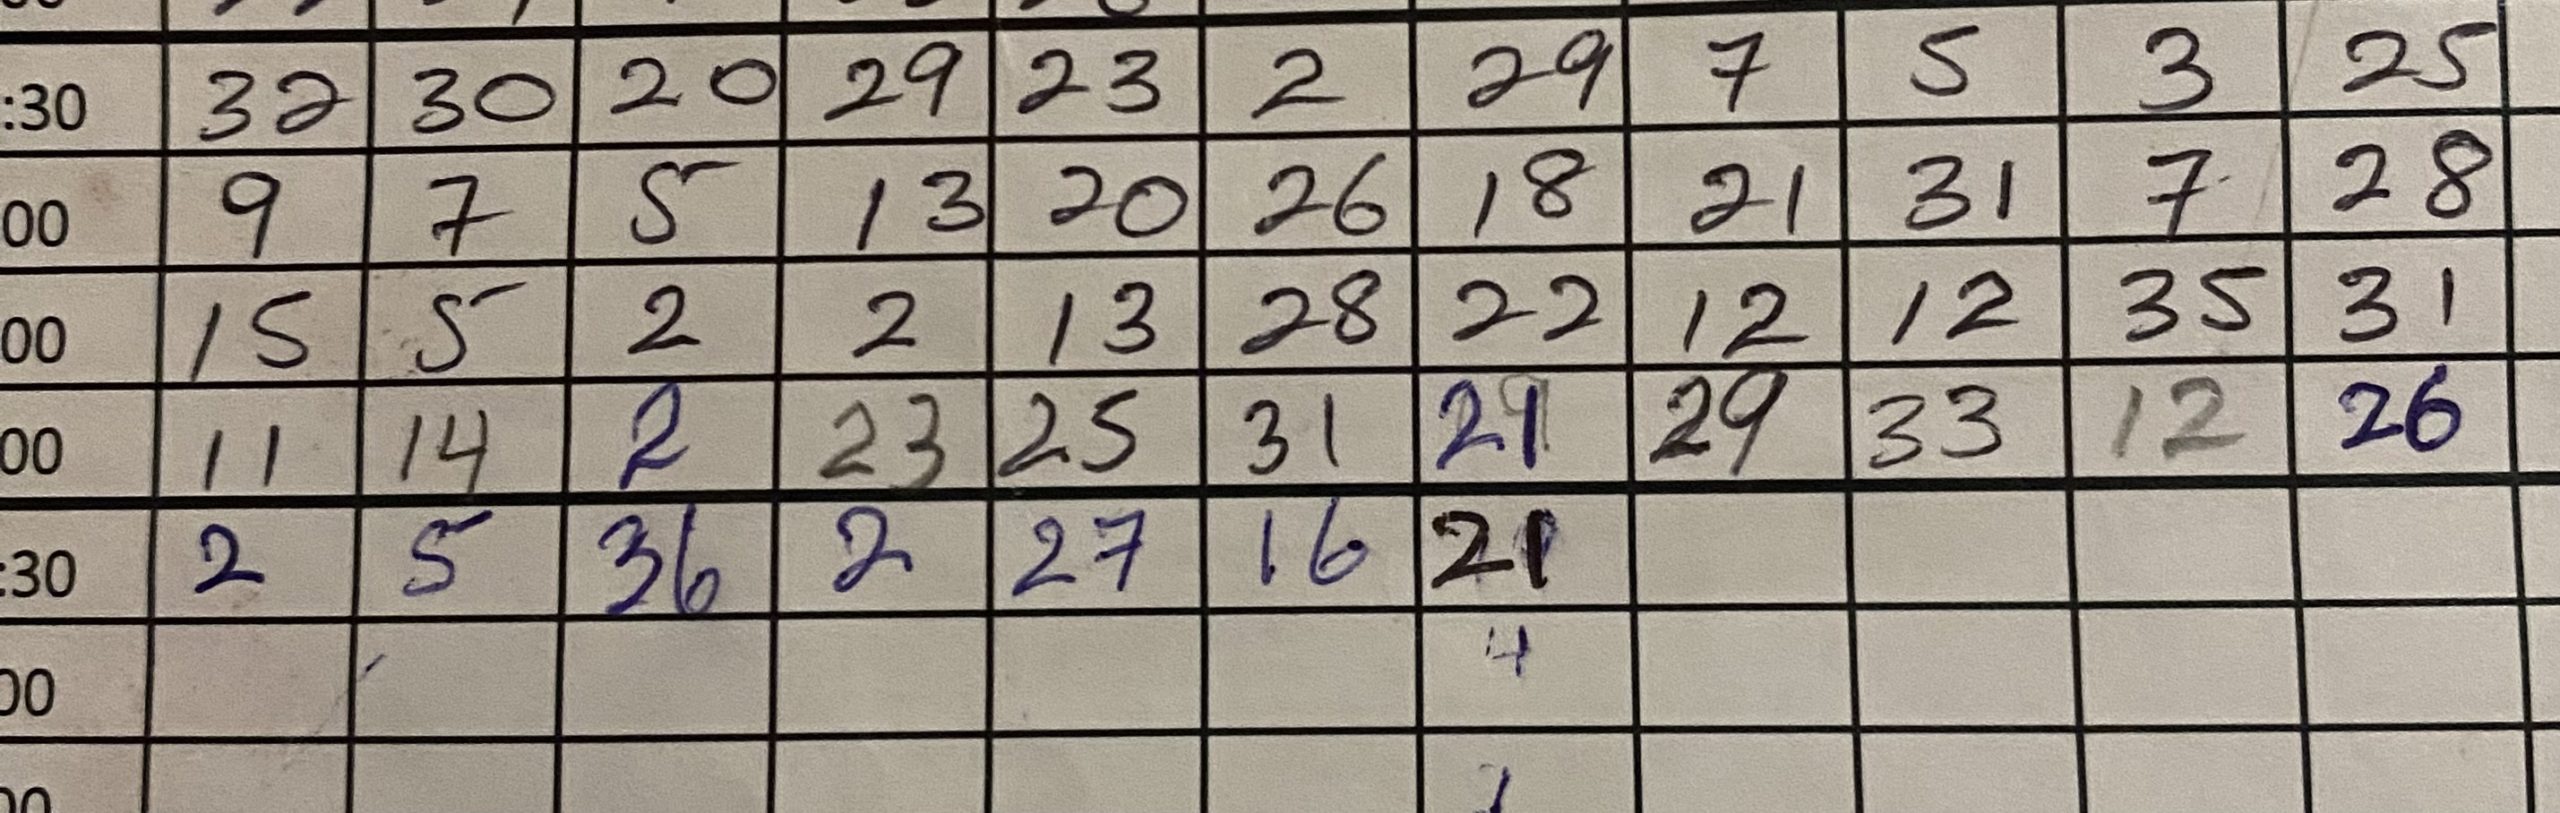 :30 32 30 20 29 23 2 29 7 5 3 25
00 9 7 5 13 20 26 18 21 31 7 28
00 15 5 2 2 13 28 22 12 12 35 31
00 11 14 2 23 25 31 21 29 33 12 26
:30 2 5 36 2 27 16 21
00 4
00